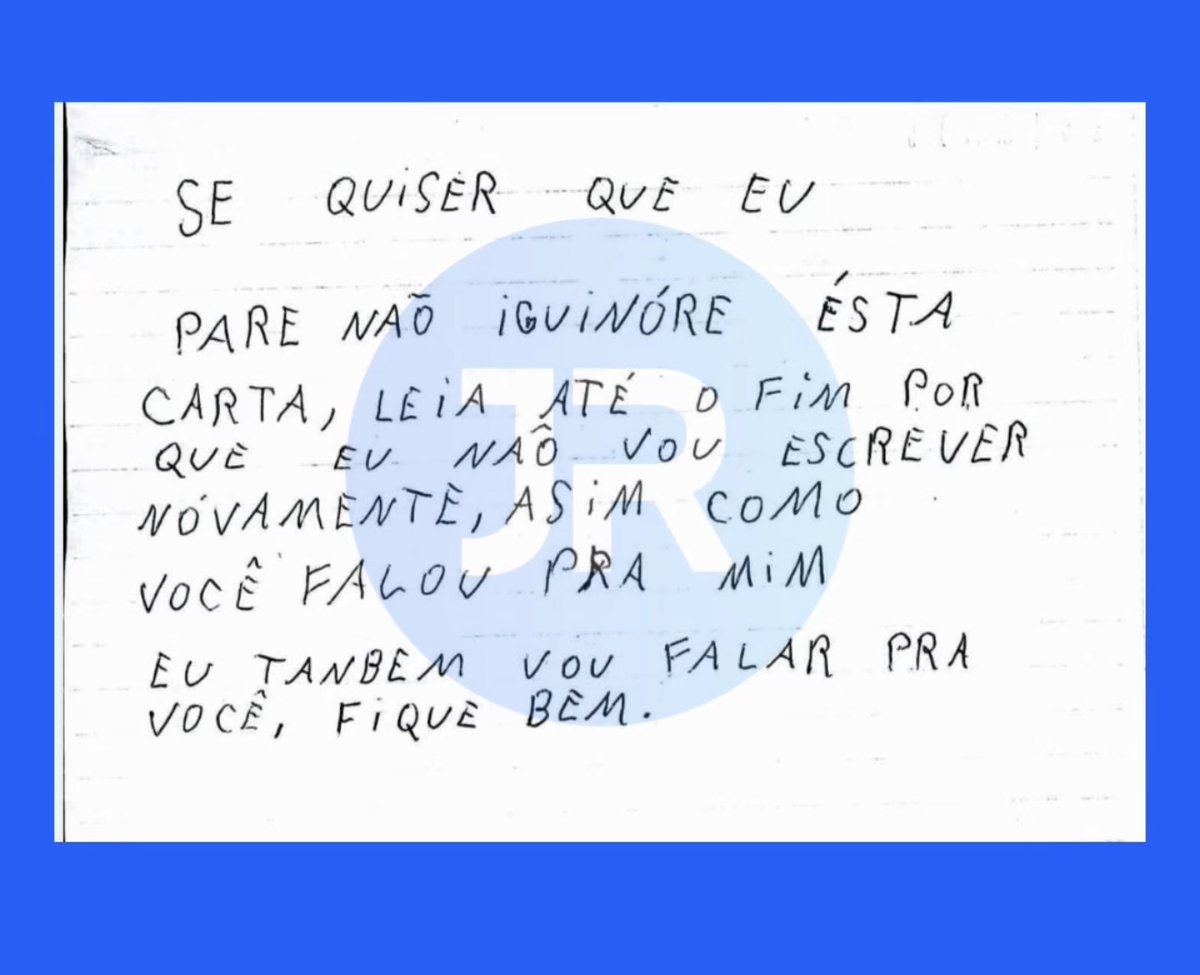 SE QUiSER QUE EU
PARE NAÕ iGUiNÓRE ÉSTA
CARTA, LEiA ATÉ O FiM POR
QUE EU NAÔ VOU ESCREVER
NÓVAMENTE, ASiM COMO
VOCÊ FALOU PRA MiM
EU TANBEM VOU FALAR PRA
VOCÊ, FiQUE BEM.
JR